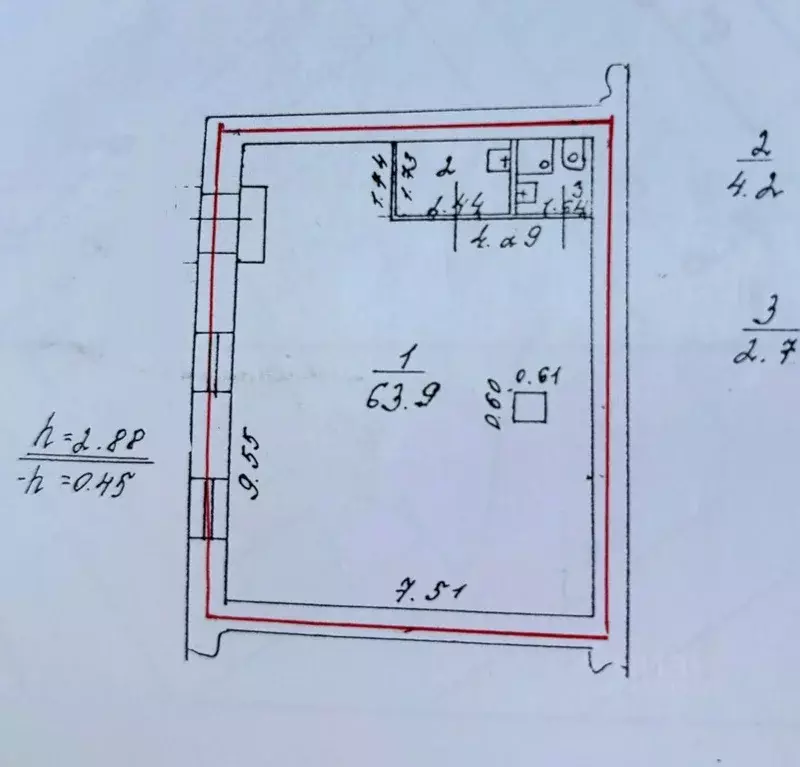 2
4.2
2
1.73
3
2.44
1.54
4.09
3
2.7
1
63.9
0.61
0.60
h=2.88
-h=0.45
9.55
7.51